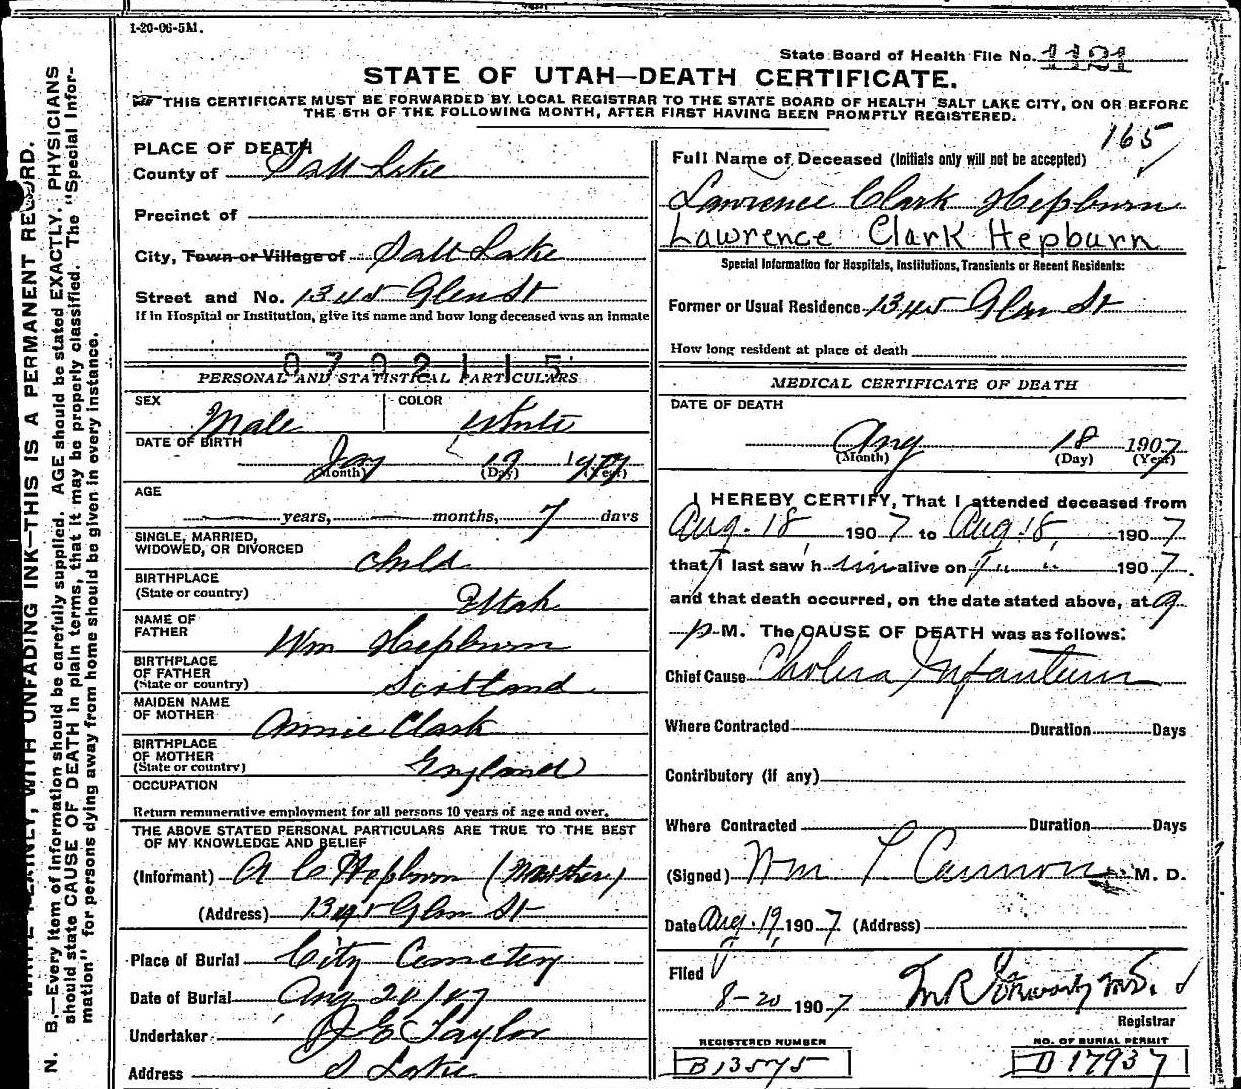 1-20-06-5M.
State Board of Health File No. 1121
STATE OF UTAH—DEATH CERTIFICATE.
THIS CERTIFICATE MUST BE FORWARDED BY LOCAL REGISTRAR TO THE STATE BOARD OF HEALTH SALT LAKE CITY, ON OR BEFORE
THE 5TH OF THE FOLLOWING MONTH, AFTER FIRST HAVING BEEN PROMPTLY REGISTERED.
165
PLACE OF DEATH
County of Salt Lake
Precinct of
City, Town or Village of Salt Lake
Street and No. 1345 Glen St
If in Hospital or Institution, give its name and how long deceased was an inmate
0702115
PERSONAL AND STATISTICAL PARTICULARS
SEX Male
COLOR White
DATE OF BIRTH
(Month) (Day) (Year)
AGE
years, months, 7 days
SINGLE, MARRIED,
WIDOWED, OR DIVORCED child
BIRTHPLACE
(State or country) Utah
NAME OF
FATHER Wm Hepburn
BIRTHPLACE
OF FATHER
(State or country) Scotland
MAIDEN NAME
OF MOTHER Annie Clark
BIRTHPLACE
OF MOTHER
(State or country) England
OCCUPATION
Return remunerative employment for all persons 10 years of age and over.
THE ABOVE STATED PERSONAL PARTICULARS ARE TRUE TO THE BEST
OF MY KNOWLEDGE AND BELIEF
(Informant) A C Hepburn (Mother)
(Address) 1345 Glen St
Place of Burial City Cemetery
Date of Burial Aug 20/07
Undertaker Taylor
Address S Lake
Full Name of Deceased (Initials only will not be accepted)
Lawrence Clark Hepburn
Lawrence Clark Hepburn
Special Information for Hospitals, Institutions, Transients or Recent Residents:
Former or Usual Residence 1345 Glen St
How long resident at place of death
MEDICAL CERTIFICATE OF DEATH
DATE OF DEATH
Aug 18 1907
(Month) (Day) (Year)
I HEREBY CERTIFY, That I attended deceased from
Aug. 18, 1907 to Aug 18, 1907
that I last saw him alive on " " 1907.
and that death occurred, on the date stated above, at 9
p M. The CAUSE OF DEATH was as follows:
Chief Cause Cholera Infantum
Where Contracted Duration Days
Contributory (if any)
Where Contracted Duration Days
(Signed) Wm T. Cannon M. D.
Date Aug. 19, 1907 (Address)
Filed
8-20 1907
Registrar
REGISTERED NUMBER
B13575
NO. OF BURIAL PERMIT
D 17937
WRITE PLAINLY, WITH UNFADING INK—THIS IS A PERMANENT RECORD.
N. B.—Every item of information should be carefully supplied. AGE should be stated EXACTLY. PHYSICIANS
should state CAUSE OF DEATH in plain terms, that it may be properly classified. The "Special Infor-
mation" for persons dying away from home should be given in every instance.